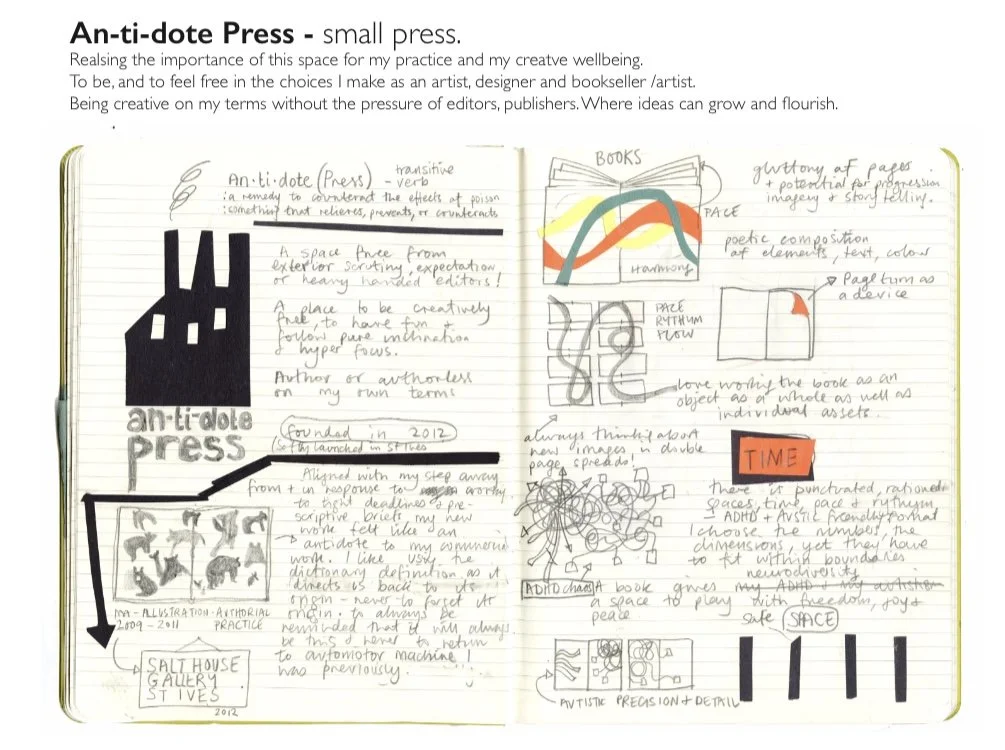 An-ti-dote Press - small press.
Realsing the importance of this space for my practice and my creatve wellbeing.
To be, and to feel free in the choices I make as an artist, designer and bookseller /artist.
Being creative on my terms without the pressure of editors, publishers. Where ideas can grow and flourish.
An·ti·dote (Press) - transitive
verb
: a remedy to counteract the effects of poison
: something that relieves, prevents, or counteracts
A space free from
exterior scrutiny, expectation
or heavy handed editors!
A place to be creatively
free, to have fun +
follow pure inclination
& hyper focus.
Author or authorless
on my own terms
an-ti-dote
press
founded in 2012
softly launched in St Ives
Aligned with my step away
from + in response to
to tight deadlines & pre-
scriptive briefs my new
work felt like an
antidote to my commercial
work. I like using the
dictionary definition as it
directs us back to its
origin - never to forget its
origin. to always be
reminded that it will always
be this & never to return
to automotor machine I
was previously.
MA - ILLUSTRATION · AUTHORIAL
2009 - 2011 PRACTICE
SALT HOUSE
GALLERY
ST IVES
2012
BOOKS
PACE
Harmony
gluttony of pages
+ potential for progression
imagery & story telling.
poetic composition
of elements, text, colour
Page turn as
a device
PACE
RYTHUM
FLOW
love working the book as an
object as a whole as well as
individual assets.
always thinking about
new images in double
page spreads!
TIME
there is punctuated, rationed
spaces, time, pace & rythum
- ADHD + AUSTIC friendly format
I choose the number, the
dimensions, yet they have
to fit within boundaries
neurodiversity
ADHD chaos
A book gives my ADHD - my autism
a space to play with freedom, joy &
peace
safe SPACE
AUTISTIC PRECISION + DETAIL